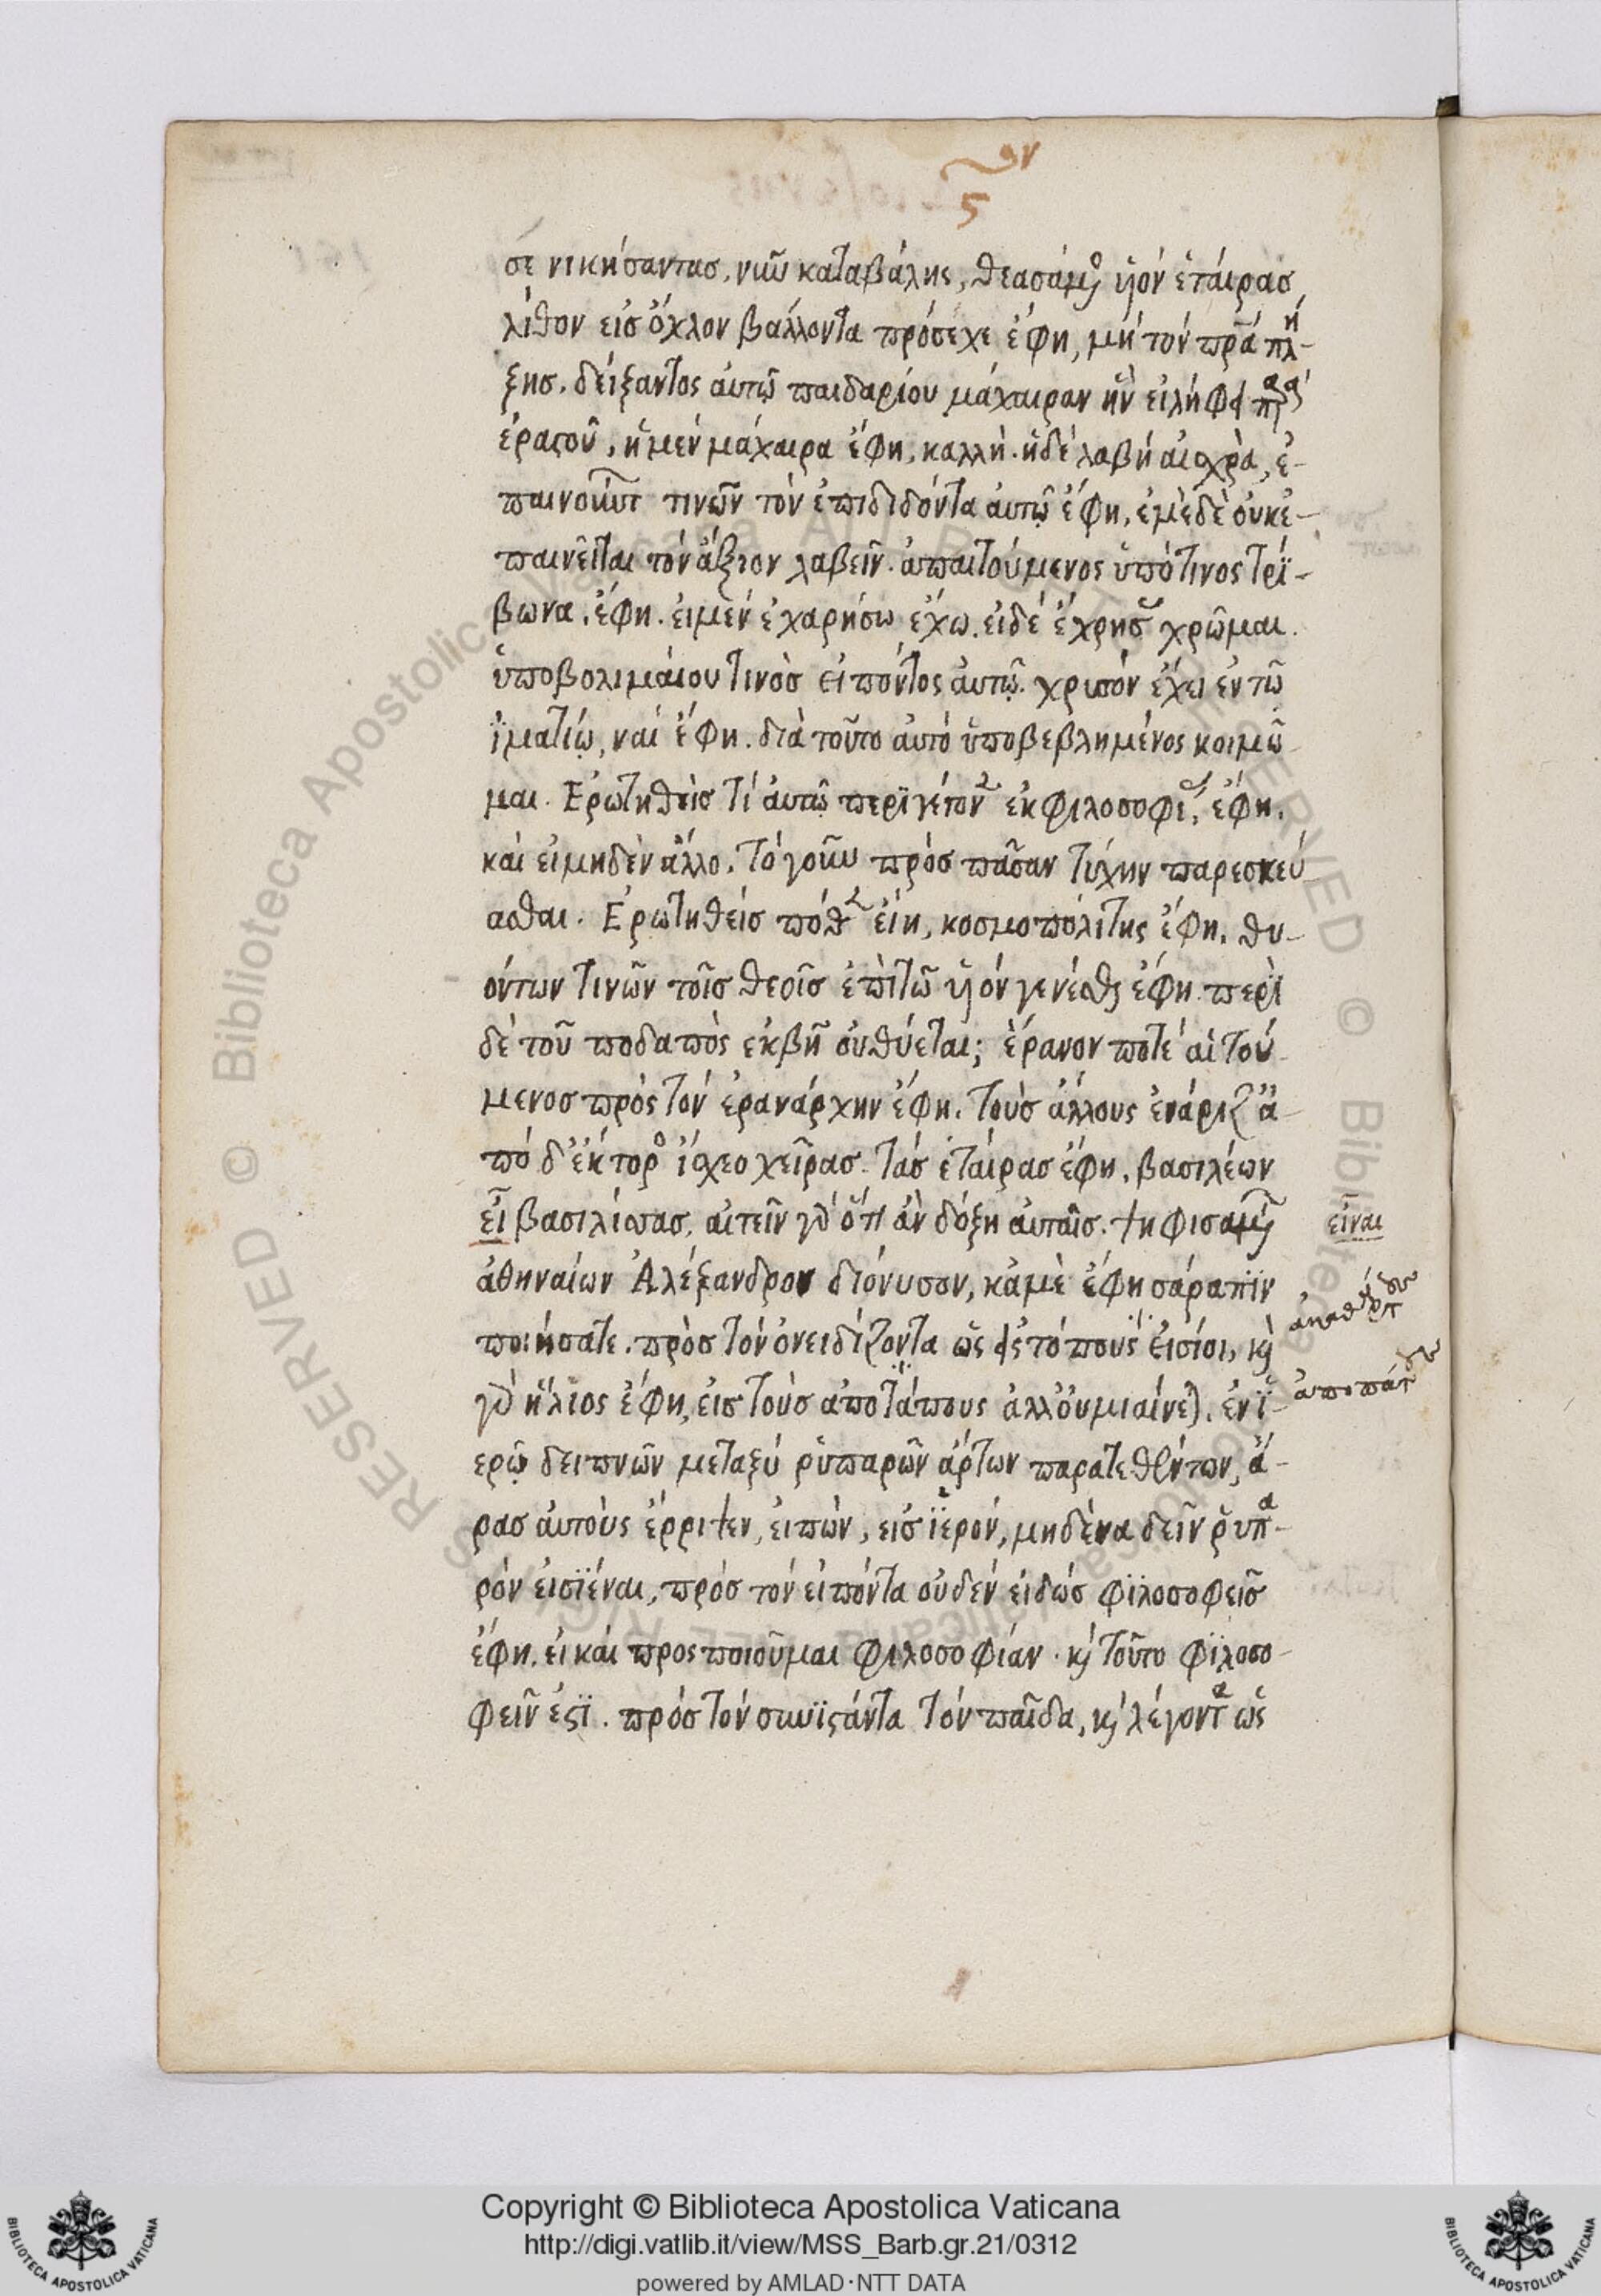 σε νικήσαντας, νῦν καταβάλης, θεασάμενος υἱὸν ἑταίρας
λίθον εἰς ὄχλον βάλλοντα πρόσεχε ἔφη, μὴ τὸν πρα πλή-
ξης. δείξαντος αὐτῷ παιδαρίου μάχαιραν ἣν εἰλήφει παρὰ
ἐραστοῦ, ἡ μὲν μάχαιρα ἔφη, καλλὴ. ἡ δὲ λαβὴ αἰσχρὰ, ἐ-
παινούντων τινῶν τὸν ἐπιδιδόντα αὐτῷ ἔφη, ἐμὲ δὲ οὐκ ἐ-
παινεῖται τὸν ἄξιον λαβεῖν. ἀπαιτούμενος ὑπό τινος τρί-
βωνα, ἔφη. εἰ μὲν ἐχαρήσω ἔχω. εἰ δὲ ἔχρησας χρῶμαι.
ὑποβολιμαίου τινὸς εἰπόντος αὐτῷ. χρυσὸν ἔχει ἐν τῷ
ἱματίῳ, ναί ἔφη. διὰ τοῦτο αὐτὸ ὑποβεβλημένος κοιμῶ
μαι. Ἐρωτηθεὶς τί αὐτῷ περιγέγονεν ἐκ φιλοσοφίας, ἔφη.
καὶ εἰ μηδὲν ἄλλο. τὸ γοῦν πρὸς πᾶσαν τύχην παρεσκευ
ασθαι. Ἐρωτηθεὶς πόθεν εἴη, κοσμοπολίτης ἔφη. θυ-
όντων τινῶν τοῖς θεοῖς ἐπὶ τῷ υἱὸν γενέσθαι ἔφη. περὶ
δὲ τοῦ ποδαπὸς ἐκβῆ οὐ θύεται; ἔρανον ποτὲ αἰτού
μενος πρὸς τὸν ἐρανάρχην ἔφη. τοὺς ἄλλους ἐνάριζ ἀ-
πὸ δ' ἕκτορος ἴσχεο χεῖρας. τὰς ἑταίρας ἔφη, βασιλέων
εἶ βασιλίσσας, αἰτεῖν γὰρ ὅτι ἂν δόξη αὐταῖς. ψηφισαμένων
εἶναι
ἀθηναίων Ἀλέξανδρον διόνυσον, κἀμὲ ἔφη σάραπιν
ποιήσατε. πρὸς τὸν ὀνειδίζοντα ὡς εἰς τόπους εἰσίοι, καὶ
γὰρ ἥλιος ἔφη, εἰς τοὺς ἀποτάπους ἀλλ' οὐ μιαίνεται. ἐν ἱ-
ερῷ δειπνῶν μεταξὺ ῥυπαρῶν ἄρτων παρατεθέντων, ἄ-
ρας αὐτοὺς ἔρριψεν, εἰπὼν, εἰς ἱερόν, μηδένα δεῖν ῥυπα-
ρὸν εἰσϊέναι, πρὸς τὸν εἰπόντα οὐδὲν εἰδὼς φϊλοσοφεῖς
ἔφη. εἰ καὶ προσποιοῦμαι φιλοσοφίαν. καὶ τοῦτο φϊλοσο-
φεῖν ἐστϊ. πρὸς τὸν συνϊστάντα τὸν παῖδα, καὶ λέγοντα ὡς
Copyright © Biblioteca Apostolica Vaticana
http://digi.vatlib.it/view/MSS_Barb.gr.21/0312
powered by AMLAD·NTT DATA